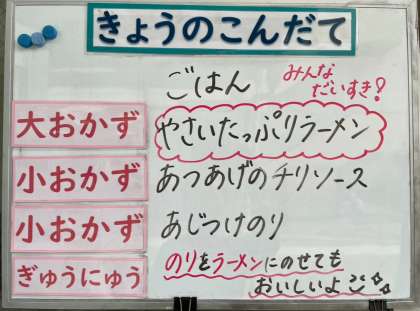 きょうのこんだて
ごはん
みんな
だいすき?
大おかず
やさいたっぷりラーメン
小おかず
あつあげのチリソース
小おかず
あじつけのり
ぎゅうにゅう
のりをラーメンにのせても
おいしいよ